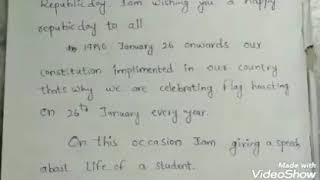 Republic day. I am wishing you a happy
repubic day to all
In 1950 January 26 onwards our
constitution implimented in our country
thats why we are celebrating Flag hoisting
on 26th January every year.
On this occasion I am giving a speech
about life of a student.
Made with
VideoShow